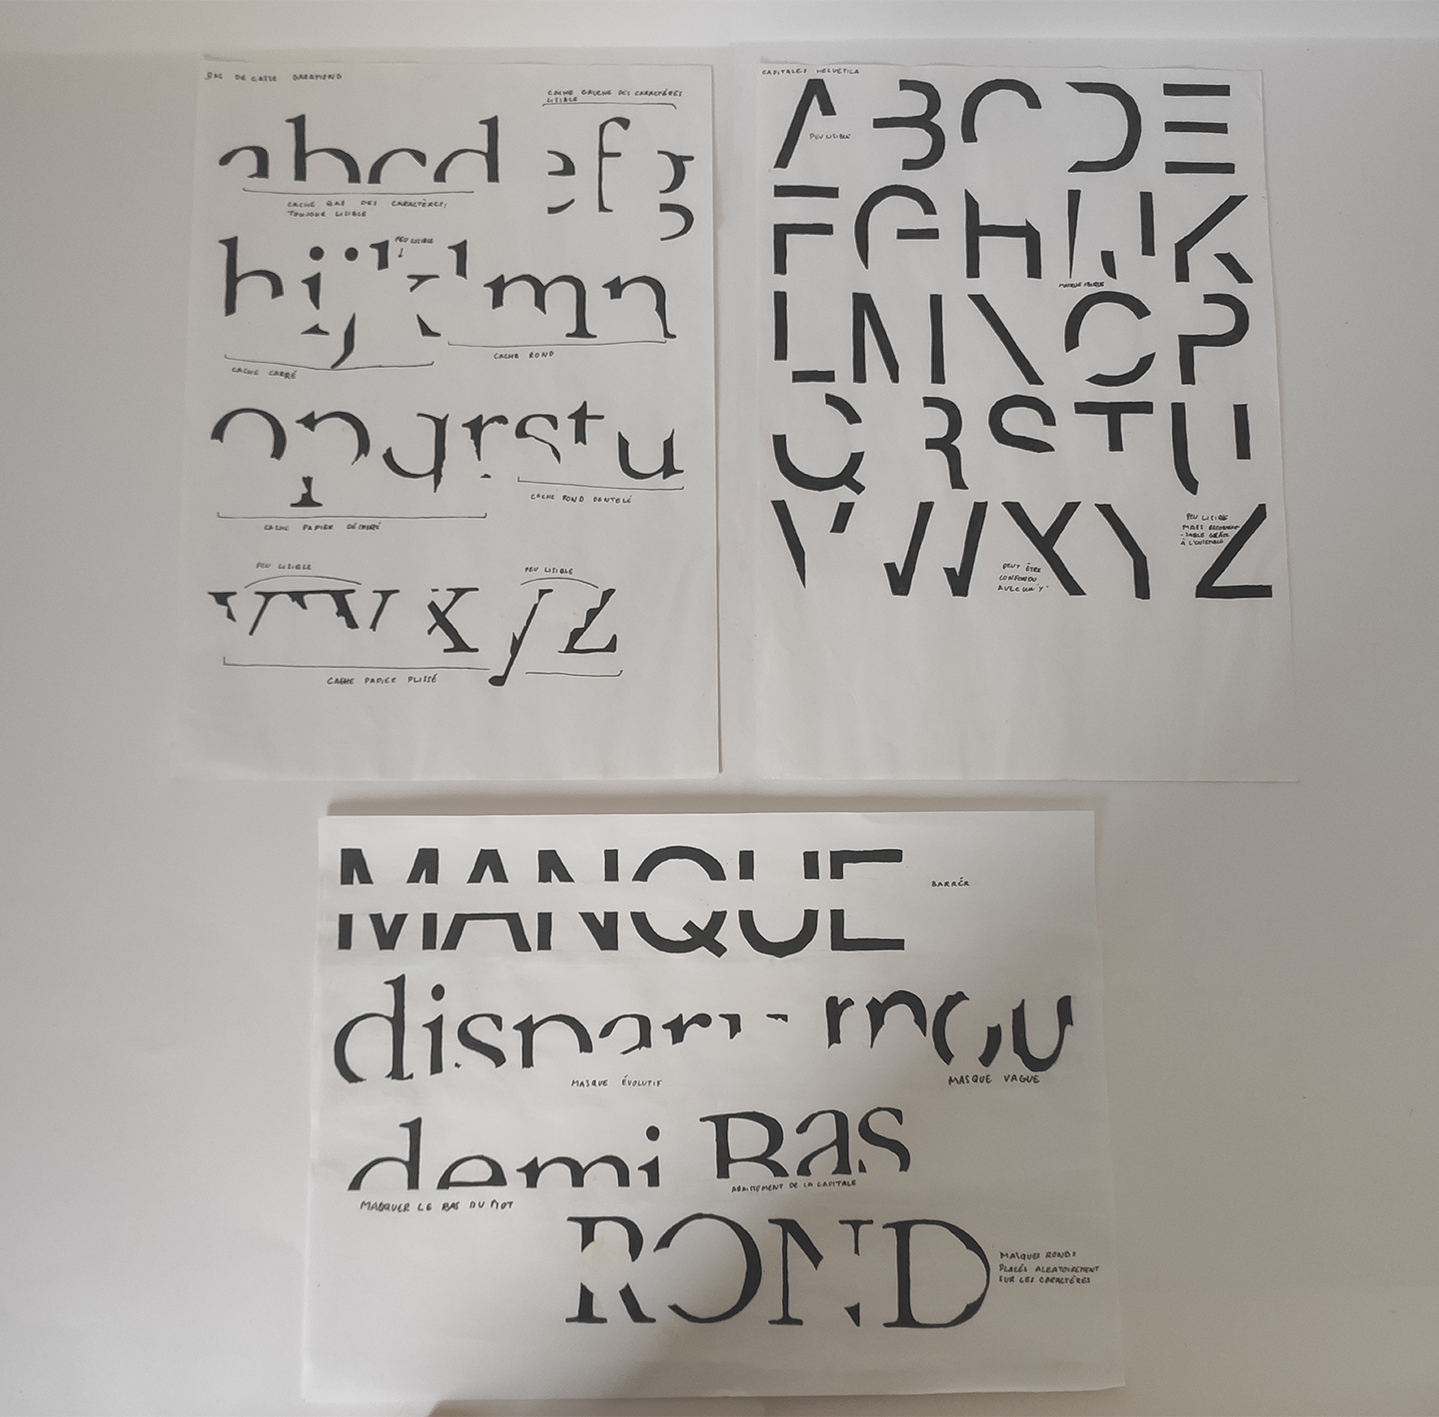 BAS DE CASSE GARAMOND
CACHE GAUCHE DES CARACTÈRES
LISIBLE
abcd efg
CACHE BAS DES CARACTÈRES,
TOUJOUR LISIBLE
PEU LISIBLE
hijklmn
CACHE CARRÉ
CACHE ROND
opqrstu
CACHE PAPIER DÉCHIRÉ
CACHE ROND DENTELÉ
PEU LISIBLE
PEU LISIBLE
vwxyz
CACHE PAPIER PLISSÉ
CAPITALES HELVETICA
ABCDE
PEU LISIBLE
FGHIJK
LMNOP
QRSTU
VWXYZ
PEUT ÊTRE
CONFONDU
AVEC UN 'Y'
PEU LISIBLE
MAIS
GRÂCE
À L'ENSEMBLE
MANQUE
BARRÉR
disparu mou
MASQUE ÉVOLUTIF
MASQUE VAGUE
demi Bas
MASQUER LE BAS DU MOT
ABAISSEMENT DE LA CAPITALE
ROND
MASQUES RONDS
PLACÉS ALÉATOIREMENT
SUR LES CARACTÈRES